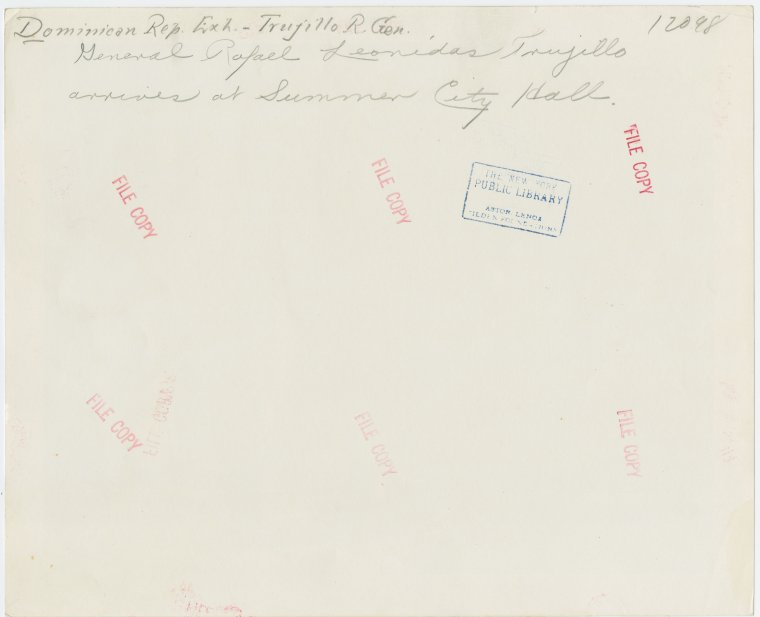 Dominican Rep. Exh. - Trujillo R. Gen. 12098
General Rafael Leonidas Trujillo
arrives at Summer City Hall.
FILE COPY
FILE COPY
FILE COPY
THE NEW YORK
PUBLIC LIBRARY
ASTOR LENOX
TILDEN FOUNDATIONS
FILE COPY
FILE COPY
FILE COPY